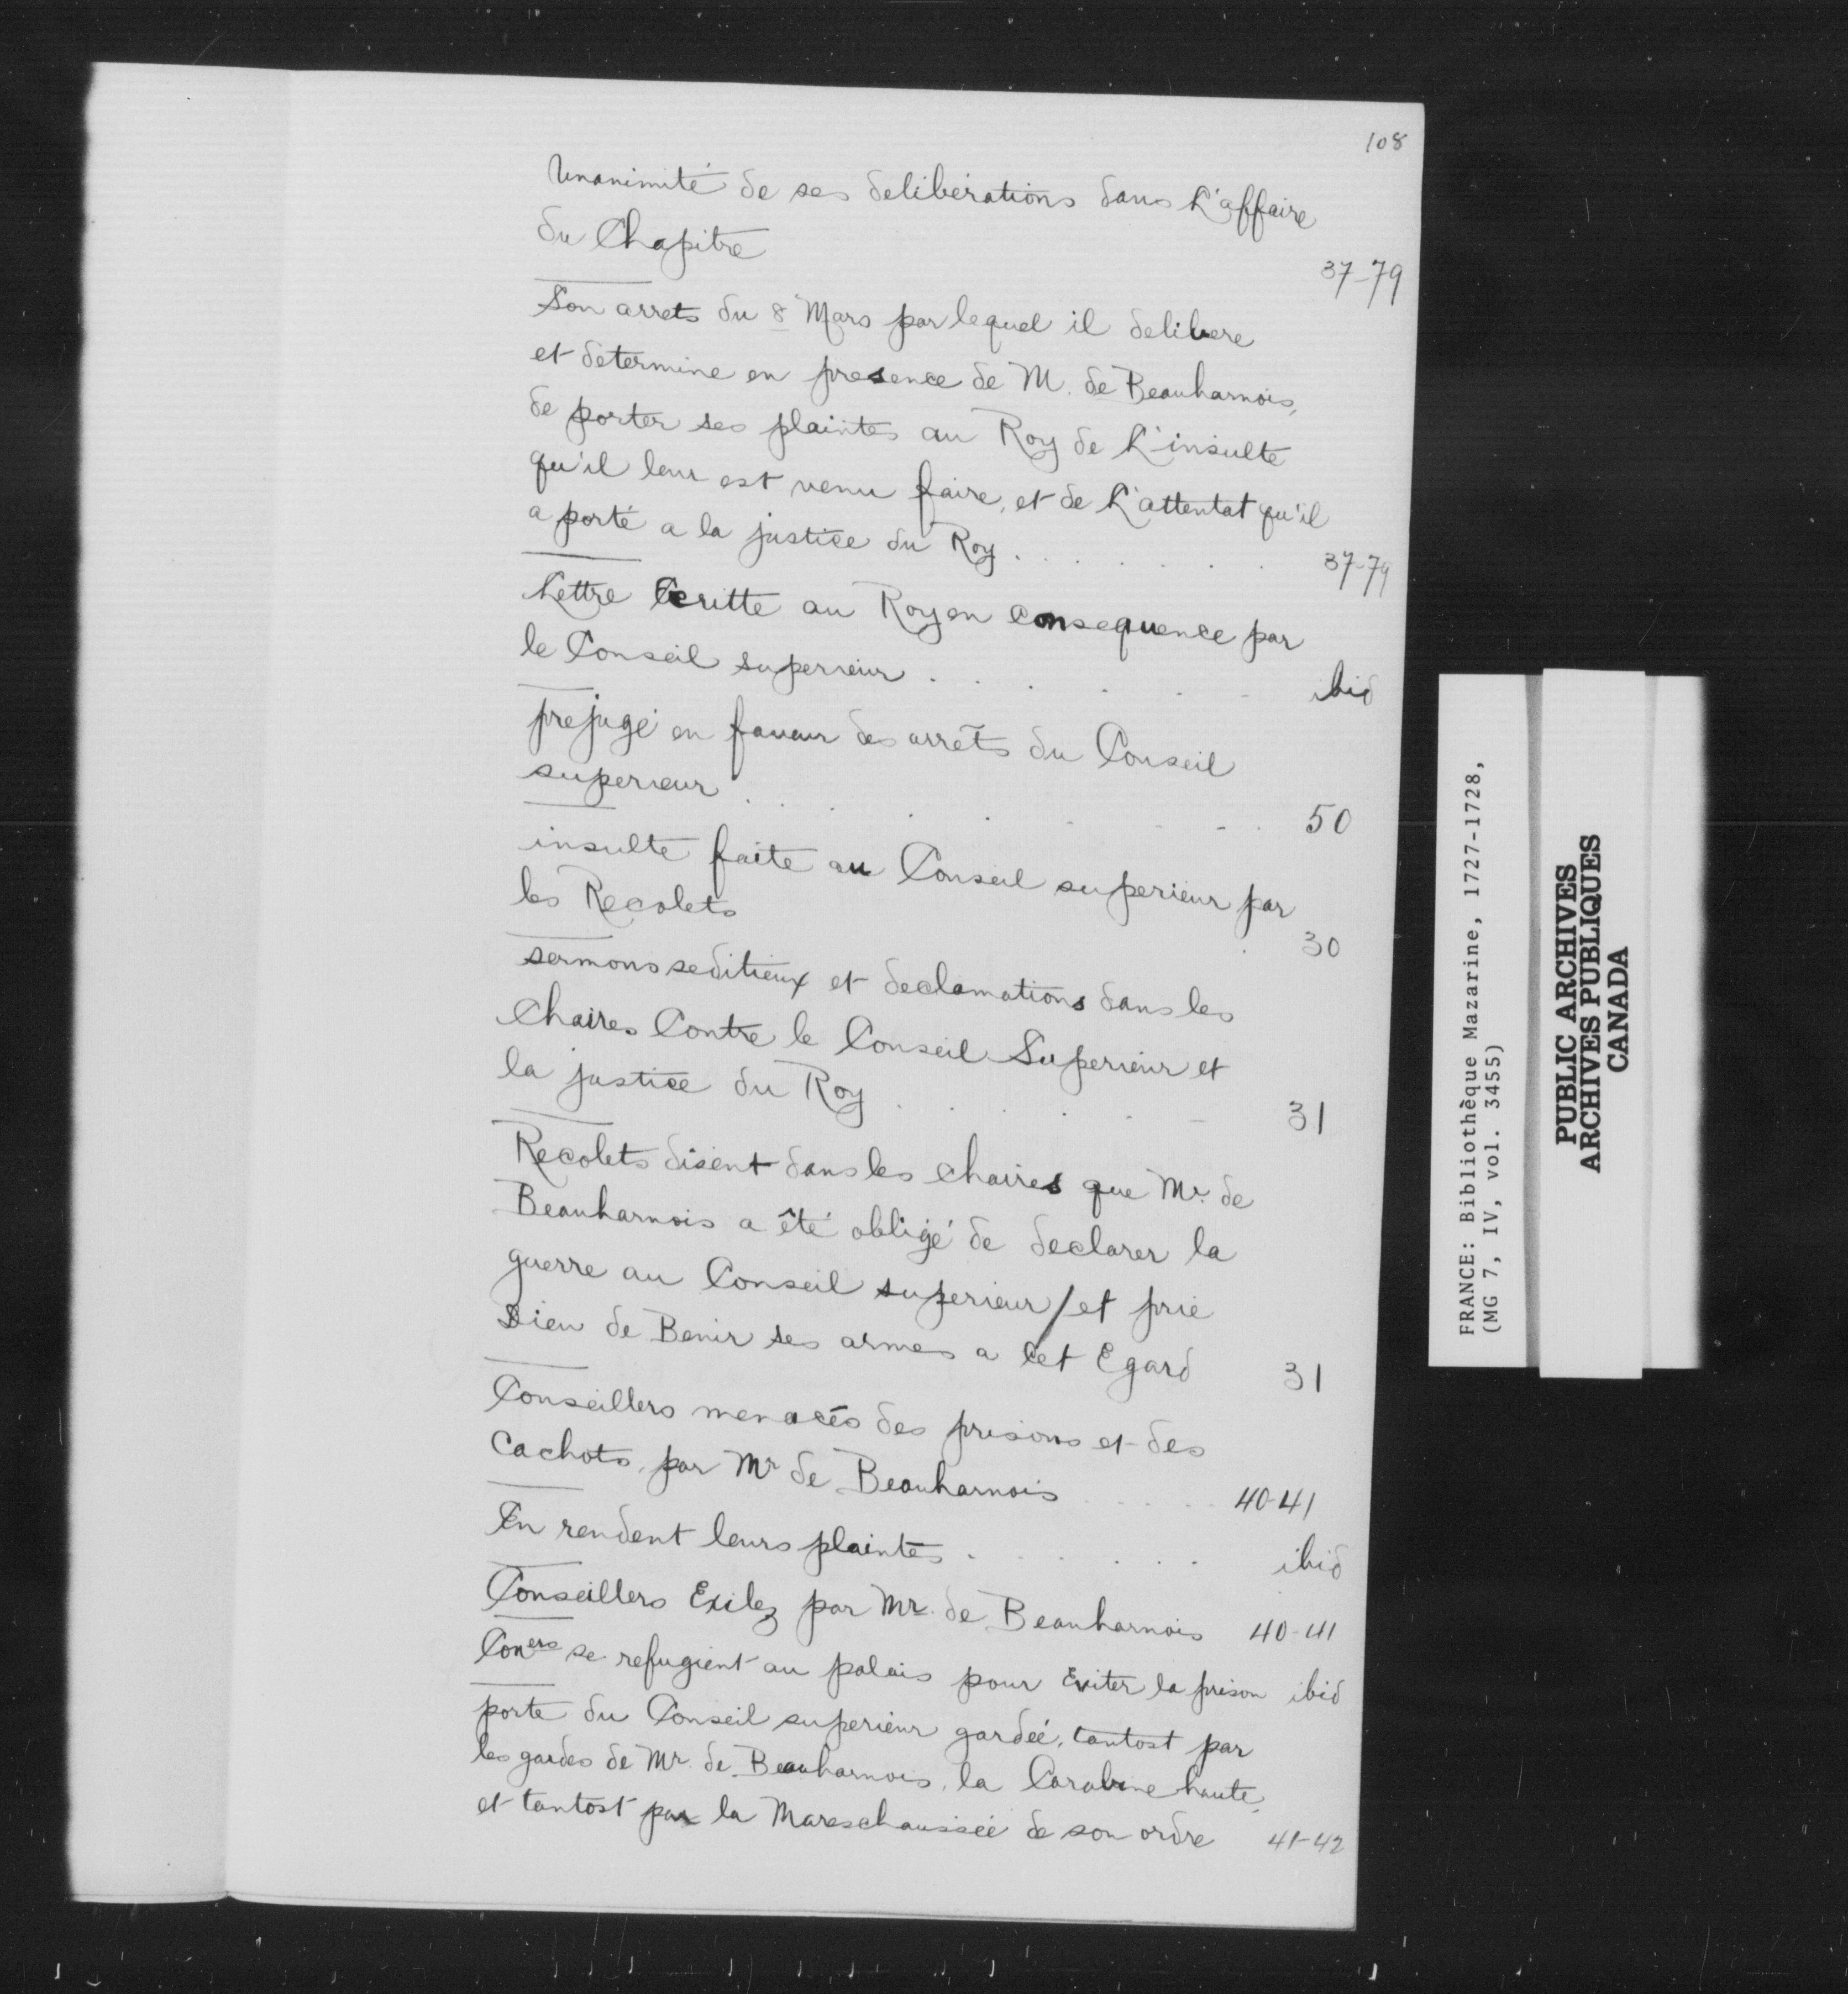 108
Unanimité de ses deliberations dans L'affaire
du Chapitre 37-79
Son arrets du 8 Mars par lequel il delibere
et determine en presence de M. de Beauharnois,
de porter ses plaintes au Roy de L'insulte
qu'il leur est venu faire, et de L'attentat qu'il
a porté a la justice du Roy . . . . . . . 37-79
Lettre Ecritte au Roy en Consequence par
le Conseil superieur . . . . . . ibid
prejugé en faveur des arrêts du Conseil
superieur . . . . . . . 50
insulte faite au Conseil superieur par
les Recolets . 30
sermons seditieux et declamations dans les
Chaires Contre le Conseil Superieur et
la justice du Roy . . . . . 31
Recolets disent dans les chaires que Mr. de
Beauharnois a êté obligé de declarer la
guerre au Conseil superieur / et prie
Dieu de Benir ses armes a Cet Egard 31
Conseillers menacés des prisons et des
Cachots, par Mr de Beauharnois . . . . . 40-41
En rendent leurs plaintes . . . . . . ibid
Conseillers Exilez par Mr. de Beauharnois 40-41
Coners se refugient au palais pour Eviter la prison ibid
porte du Conseil superieur gardée, tantost par
les gardes de Mr. de Beauharnois, la Carabine haute,
et tantost par la Mareschaussée de son ordre 41-42
FRANCE: Bibliothèque Mazarine, 1727-1728,
(MG 7, IV, vol. 3455)
PUBLIC ARCHIVES
ARCHIVES PUBLIQUES
CANADA